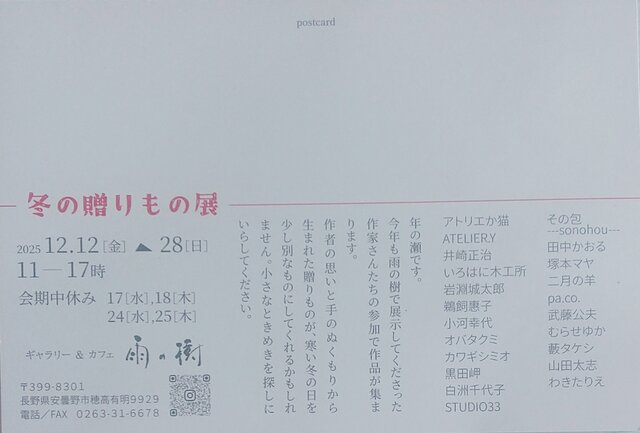 postcard
冬の贈りもの展
2025 12.12［金］ 28［日］
11―17時
会期中休み 17［水］,18［木］
24［水］,25［木］
ギャラリー & カフェ 雨の樹
〒399-8301
長野県安曇野市穂高有明9929
電話／FAX 0263-31-6678
年の瀬です。
今年も雨の樹で展示してくださった
作家さんたちの参加で作品が集ま
ります。
作者の思いと手のぬくもりから
生まれた贈りものが、寒い冬の日を
少し別なものにしてくれるかもしれ
ません。小さなときめきを探しに
いらしてください。
アトリエか猫
ATELIER.Y
井崎正治
いろはに木工所
岩淵城太郎
鵜飼惠子
小河幸代
オバタクミ
カワギシミオ
黒田岬
白洲千代子
STUDIO33
その包
---sonohou---
田中かおる
塚本マヤ
二月の羊
pa.co.
武藤公夫
むらせゆか
藪タケシ
山田太志
わきたりえ